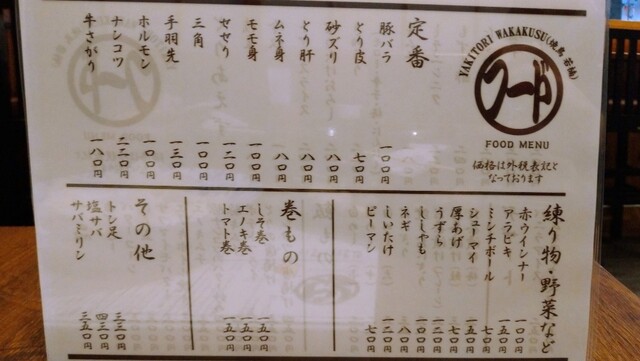 YAKITORI WAKAKUSU(焼鳥 若楠)
フード
FOOD MENU
価格は外税表記と
なっております
定番
豚バラ 一〇〇円
とり皮 七〇円
砂ズリ 八〇円
とり肝 八〇円
ムネ身 八〇円
モモ身 一〇〇円
せせり 一二〇円
三角 一〇〇円
手羽先 一三〇円
ホルモン 一〇〇円
ナンコツ 一二〇円
牛さがり 一八〇円
練り物・野菜など
赤ウインナー 一〇〇円
アラビキ 一五〇円
ミンチボール 七〇円
シューマイ 一五〇円
厚あげ 七〇円
うずら 一二〇円
ししゃも 一〇〇円
ネギ 八〇円
しいたけ 一二〇円
ピーマン 七〇円
巻もの
しそ巻 一五〇円
エノキ巻 一五〇円
トマト巻 一五〇円
その他
トン足 三三〇円
塩サバ 四三〇円
サバミリン 三五〇円